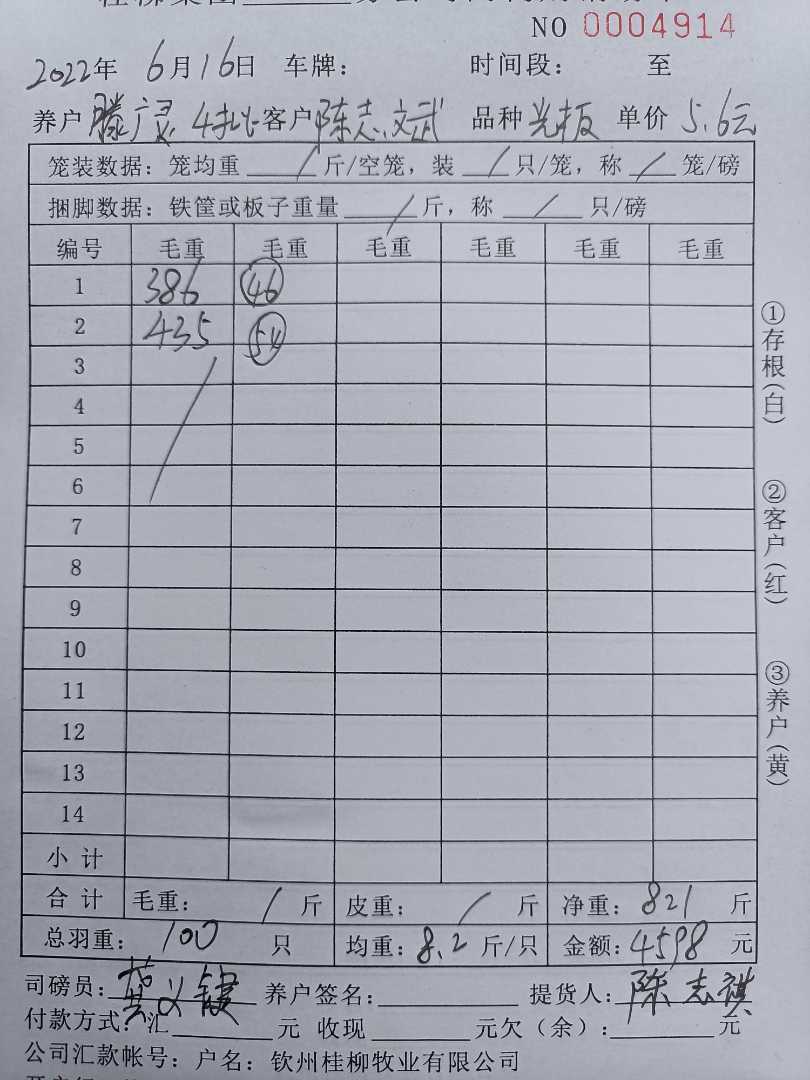 NO 0004914
2022年 6月16日 车牌： 时间段： 至
养户 滕广灵 4批 客户 陈志文武 品种 光板 单价 5.6元
笼装数据：笼均重 / 斤/空笼，装 / 只/笼，称 / 笼/磅
捆脚数据：铁筐或板子重量 / 斤，称 / 只/磅
编号 毛重 毛重 毛重 毛重 毛重 毛重
1 386 46
2 435 54
3
4
5
6
7
8
9
10
11
12
13
14
小计
合计 毛重： / 斤 皮重： / 斤 净重：821 斤
总羽重：100 只 均重：8.2 斤/只 金额：4598 元
司磅员： 养户签名： 提货人：陈志祺
付款方式：汇 元 收现 元欠（余）： 元
公司汇款帐号：户名：钦州桂柳牧业有限公司
①存根（白）
②客户（红）
③养户（黄）